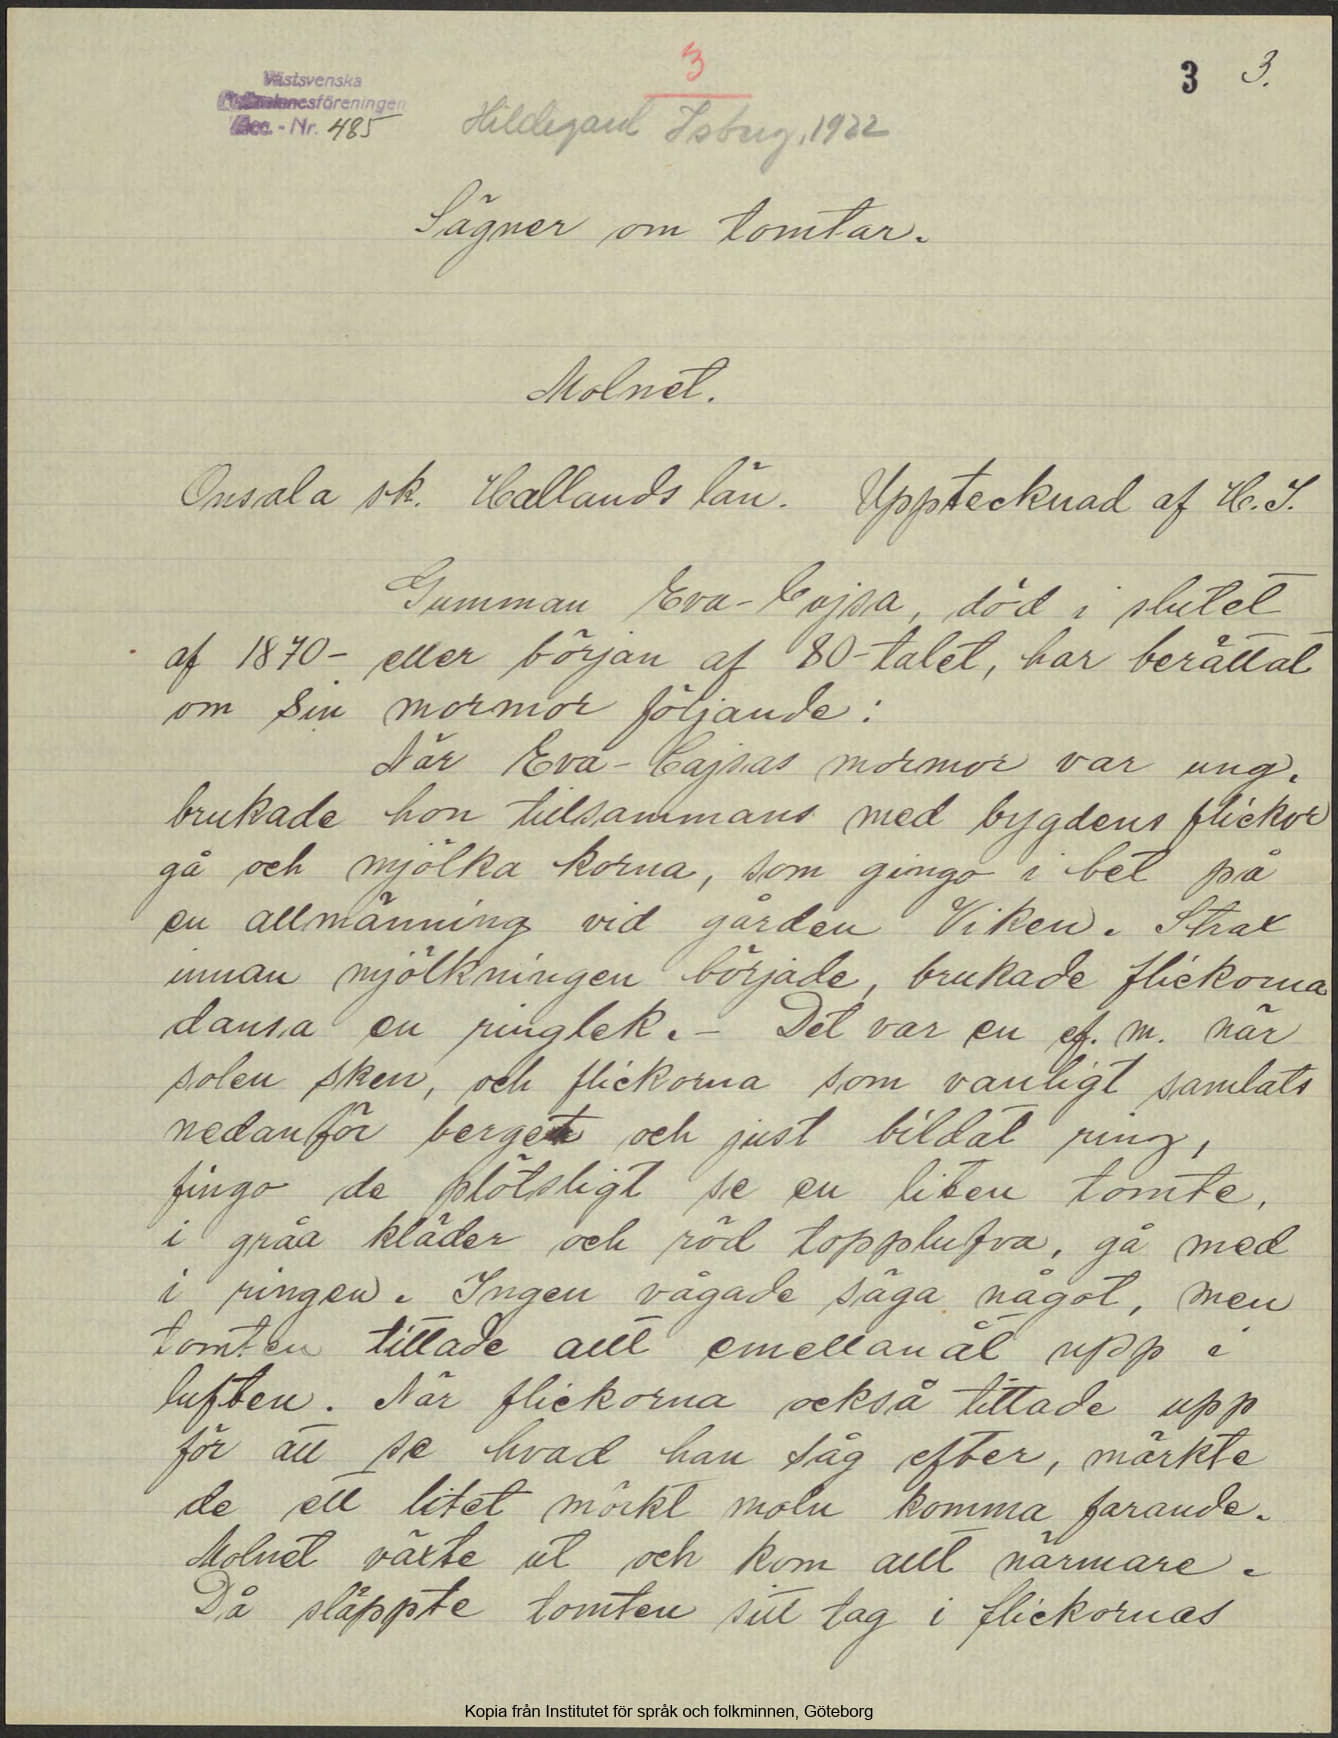 3
3 3.
Västsvenska
Folkminnesföreningen
Acc. - Nr. 485
Hildegard Isberg, 1922
Sägner om tomtar.
Molnet.
Onsala sk. Hallands län. Upptecknad af H.I.
Gumman Eva-Cajsa, död i slutet
af 1870- eller början af 80-talet, har berättat
om sin mormor följande:
När Eva-Cajsas mormor var ung,
brukade hon tillsammans med bygdens flickor
gå och mjölka korna, som gingo i bet på
en allmänning vid gården Viken. Strax
innan mjölkningen började, brukade flickorna
dansa en ringlek. - Det var en ef. m. när
solen sken, och flickorna som vanligt samlats
nedanför berget och just bildat ring,
fingo de plötsligt se en liten tomte,
i gråa kläder och röd topplufva, gå med
i ringen. Ingen vågade säga något, men
tomten tittade allt emellanåt upp i
luften. När flickorna också tittade upp
för att se hvad han såg efter, märkte
de ett litet mörkt moln komma farande.
Molnet växte ut och kom allt närmare.
Då släppte tomten sitt tag i flickornas
Kopia från Institutet för språk och folkminnen, Göteborg